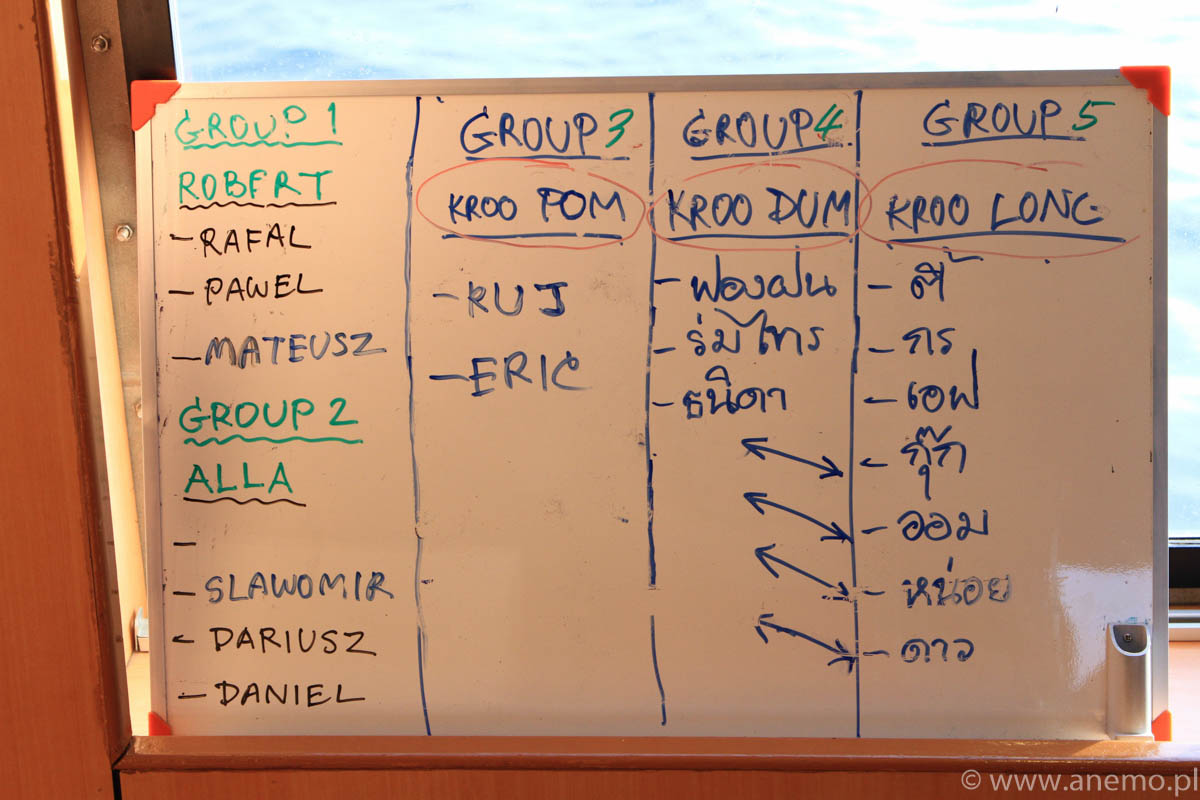 GROUP 1
ROBERT
- RAFAL
- PAWEL
- MATEUSZ
GROUP 2
ALLA
-
- SLAWOMIR
- DARIUSZ
- DANIEL
GROUP 3
KROO POM
- RUJ
- ERIC
GROUP 4
KROO DUM
- ฟองฝน
- ร่มไทร
- ธนิดา
GROUP 5
KROO LONG
- ตี้
- กร
- เอฟ
- กุ๊ก
- ออม
- หน่อย
- ดาว
© www.anemo.pl